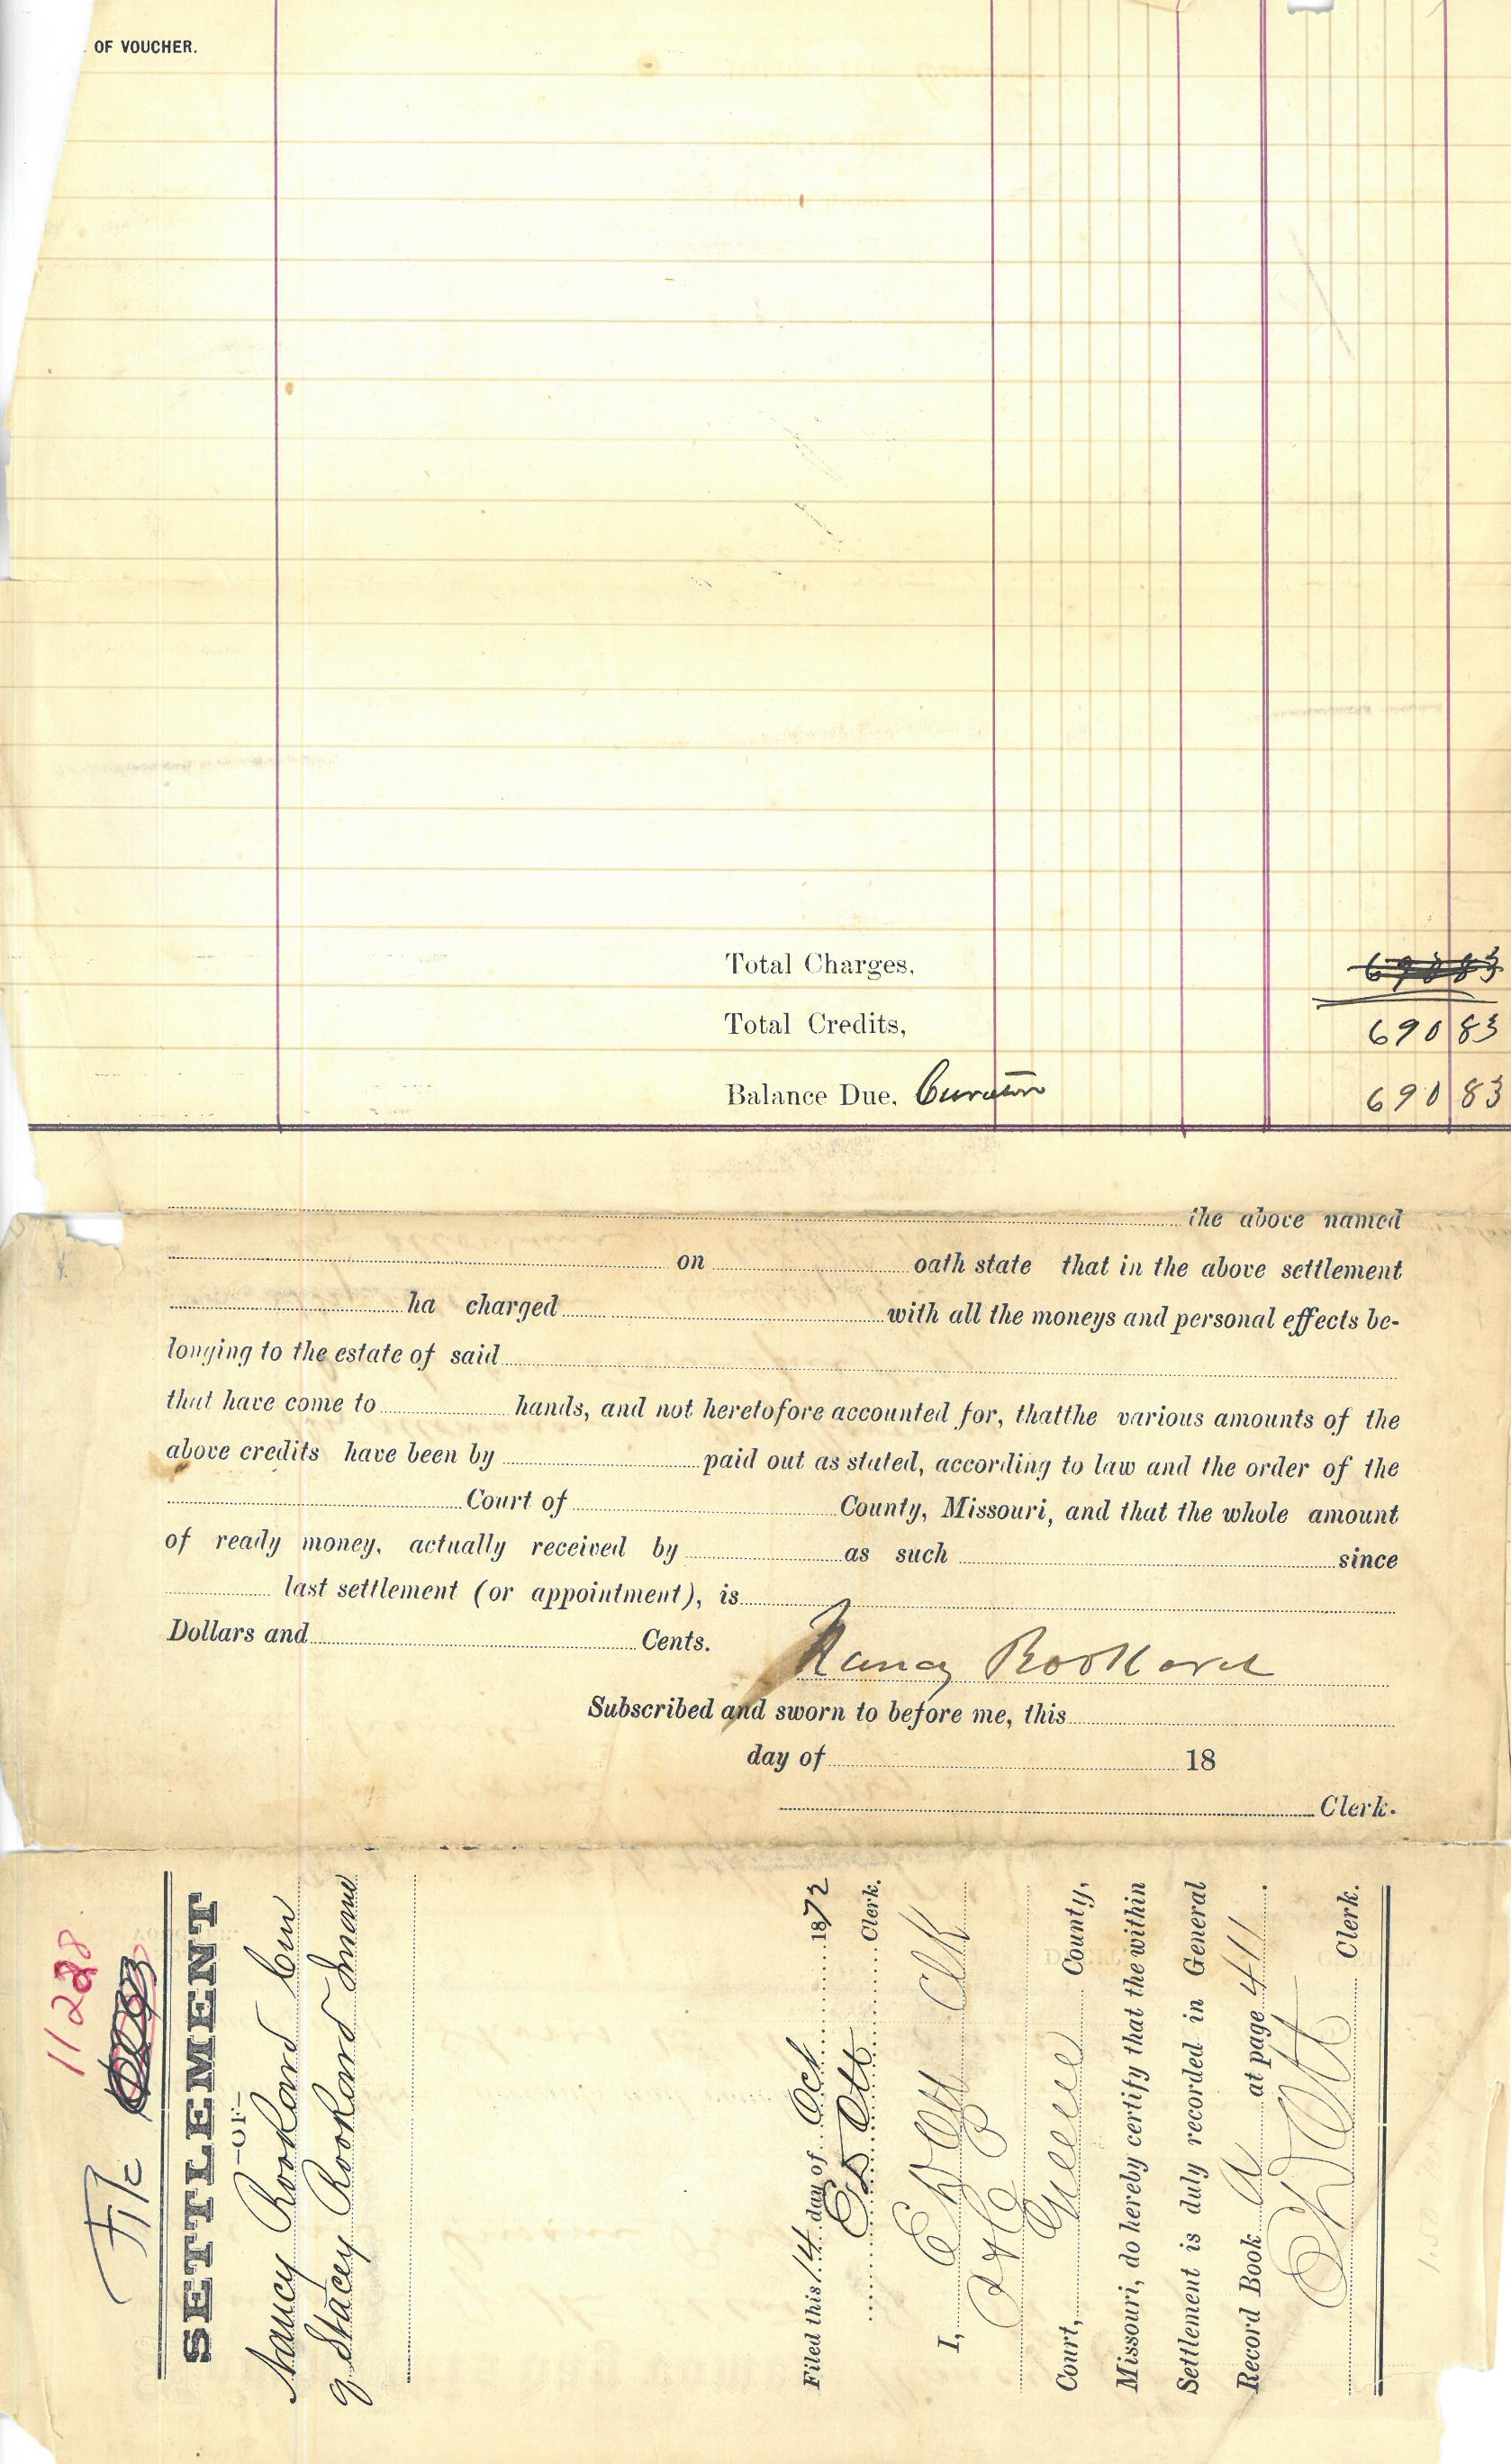 OF VOUCHER.
Total Charges, 690 83
Total Credits, 690 83
Balance Due, Curator 690 83
the above named
on oath state that in the above settlement
ha charged with all the moneys and personal effects be-
longing to the estate of said
that have come to hands, and not heretofore accounted for, thatthe various amounts of the
above credits have been by paid out as stated, according to law and the order of the
Court of County, Missouri, and that the whole amount
of ready money, actually received by as such since
last settlement (or appointment), is
Dollars and Cents.
Nancy Rookard
Subscribed and sworn to before me, this
day of 18
Clerk.
11288
File
SETTLEMENT
—OF—
Nancy Rookard Cur
of Stacey Rookard Insane
Filed this 14 day of Oct 1872
Clerk.
I, Clk
Court, Greene County,
Missouri, do hereby certify that the within
Settlement is duly recorded in General
Record Book A at page 411.
Clerk.